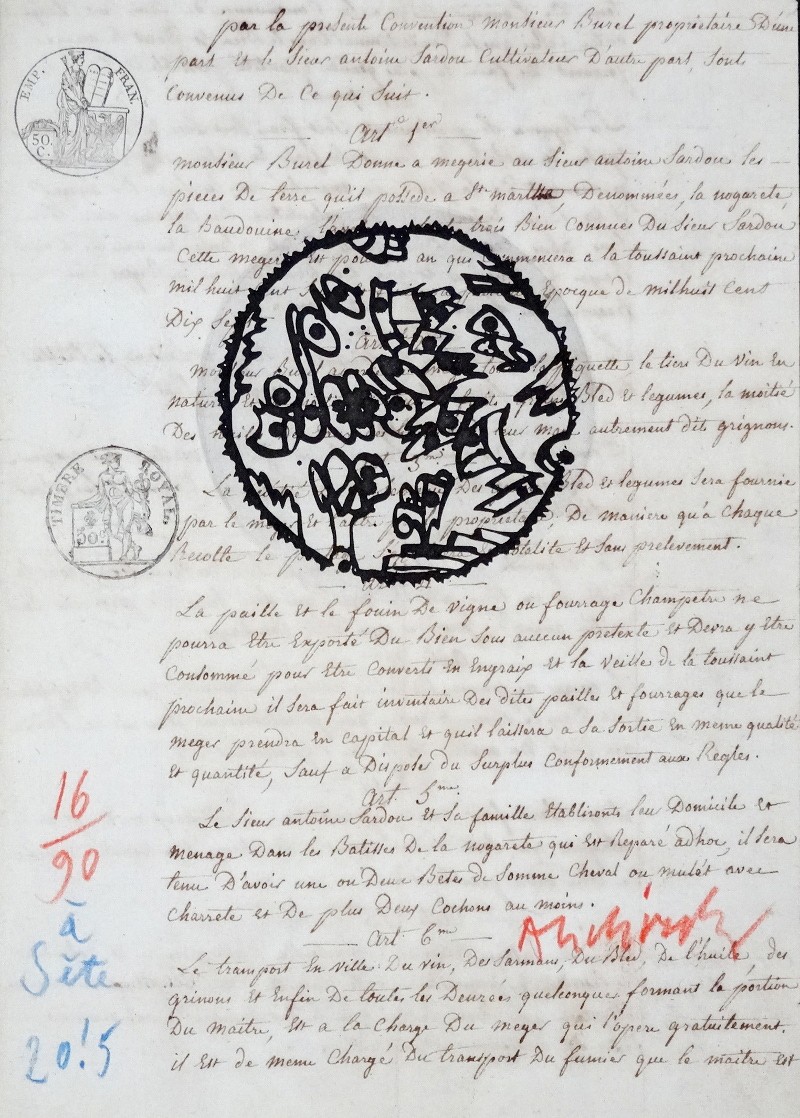 par la presente Convention monsieur Burel proprietaire D'une
part et le sieur antoine Sardou Cultivateur D'autre part, sont
Convenus De Ce qui suit.
EMP. FRAN.
50.
C.
Art.e 1er
monsieur Burel Donne a megerie au sieur antoine Sardou les
pieces De terre qu'il possede a St. martha, Denommées, la nogarete,
la Baudouine, trois Bien Connues Du Sieur Sardou
Cette est an qui Commencera a la toussaint prochaine
mil huit Epocque de mil huit Cens
Dix
la piquette le tiers Du vin En
Bled et legumes, la moitié
Des autrement dits grignons.
La Des Bled et legumes Sera fournie
par le meger et proprietaire, De maniere qu'a Chaque
Recolte le et Sans prelevement.
TIMBRE ROYAL.
50.
La paille et le fouin De vigne ou fourrage Champetre ne
pourra Etre Exporté Du Bien Sous auccun pretexte et Devra y Etre
Consommé pour Etre Converts En Engraix et la veille de la toussaint
prochaine il Sera fait inventaire Des dites pailles et fourrages que le
meger prendra En Capital et quil laissera a Sa Sortie En meme qualité
Et quantité, Sauf a Disposer du Surplus Conformement aux Regles.
Art. 5me.
Le Sieur antoine Sardou et Sa famille Etablironts leur Domicile et
menage Dans les Batisses De la nogarete qui Est Reparé adhoc, il Sera
tenu D'avoir une ou Deux Betes de Somme Cheval ou mulet avec
Charrete et De plus Deux Cochons au moins.
Art 6me
Le transport En ville Du vin, Des Sarmans, Du Bled, De l'huile, des
grinons et Enfin De toutes les Denrées quelconques formant la portion
Du maitre, Est a la Charge Du meger qui l'opere gratuitement.
il Est de meme Chargé Du transport Du fumier que le maitre Est
16
90
à
Sète
20!5
Alechinsky